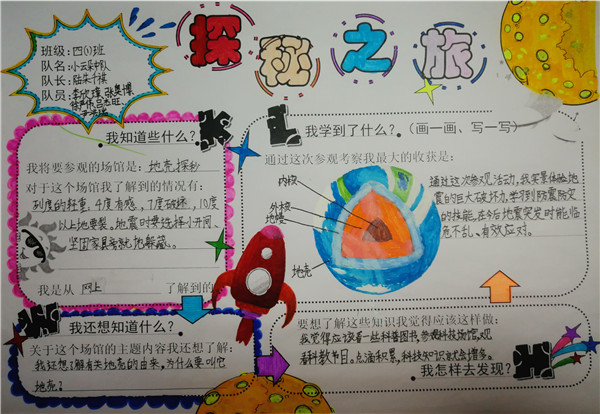 探秘之旅
班级:四(1)班
队名:小云朵中队
队长:
队员:
我知道些什么?
我将要参观的场馆是:地壳探秘
对于这个场馆我了解到的情况有:
烈度的轻重,4度有感,7度破速,10度
以上地要裂。地震时要选择小开间、
坚固家具旁就地躲藏。
我是从 网上 了解到的
我还想知道什么?
关于这个场馆的主题内容我还想了解:
我还想了解有关地壳的由来,为什么要叫它
地壳?
我学到了什么?(画一画、写一写)
通过这次参观考察我最大的收获是:
内核
外核
地幔
地壳
通过这次参观活动,我实景体验地
震的巨大破坏力,学习到防震防灾
的技能,在今后地震突发时能临
危不乱、有效应对。
要想了解这些知识我觉得应该这样做:
我觉得应该看一些科普图书,参观科技场馆,观
看科教节目。点滴积累,科技知识就会增多。
我怎样去发现?